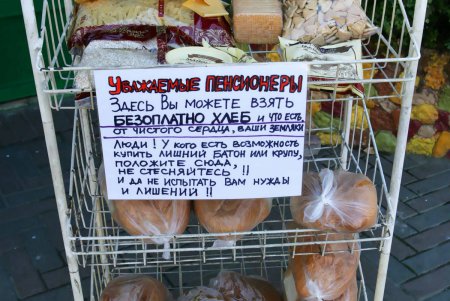 Уважаемые пенсионеры
Здесь Вы можете взять
безоплатно хлеб и что есть,
от чистого сердца, ваши земляки
Люди! У кого есть возможность
купить лишний батон или крупу,
положите сюда,
не стесняйтесь!!
и да не испытать вам нужды
и лишений!!